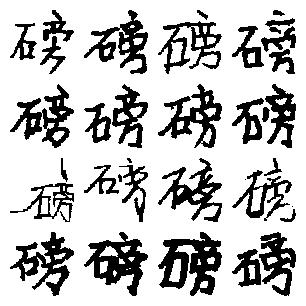 磅磅磅磅
磅磅磅磅
磅磅磅磅
磅磅磅磅